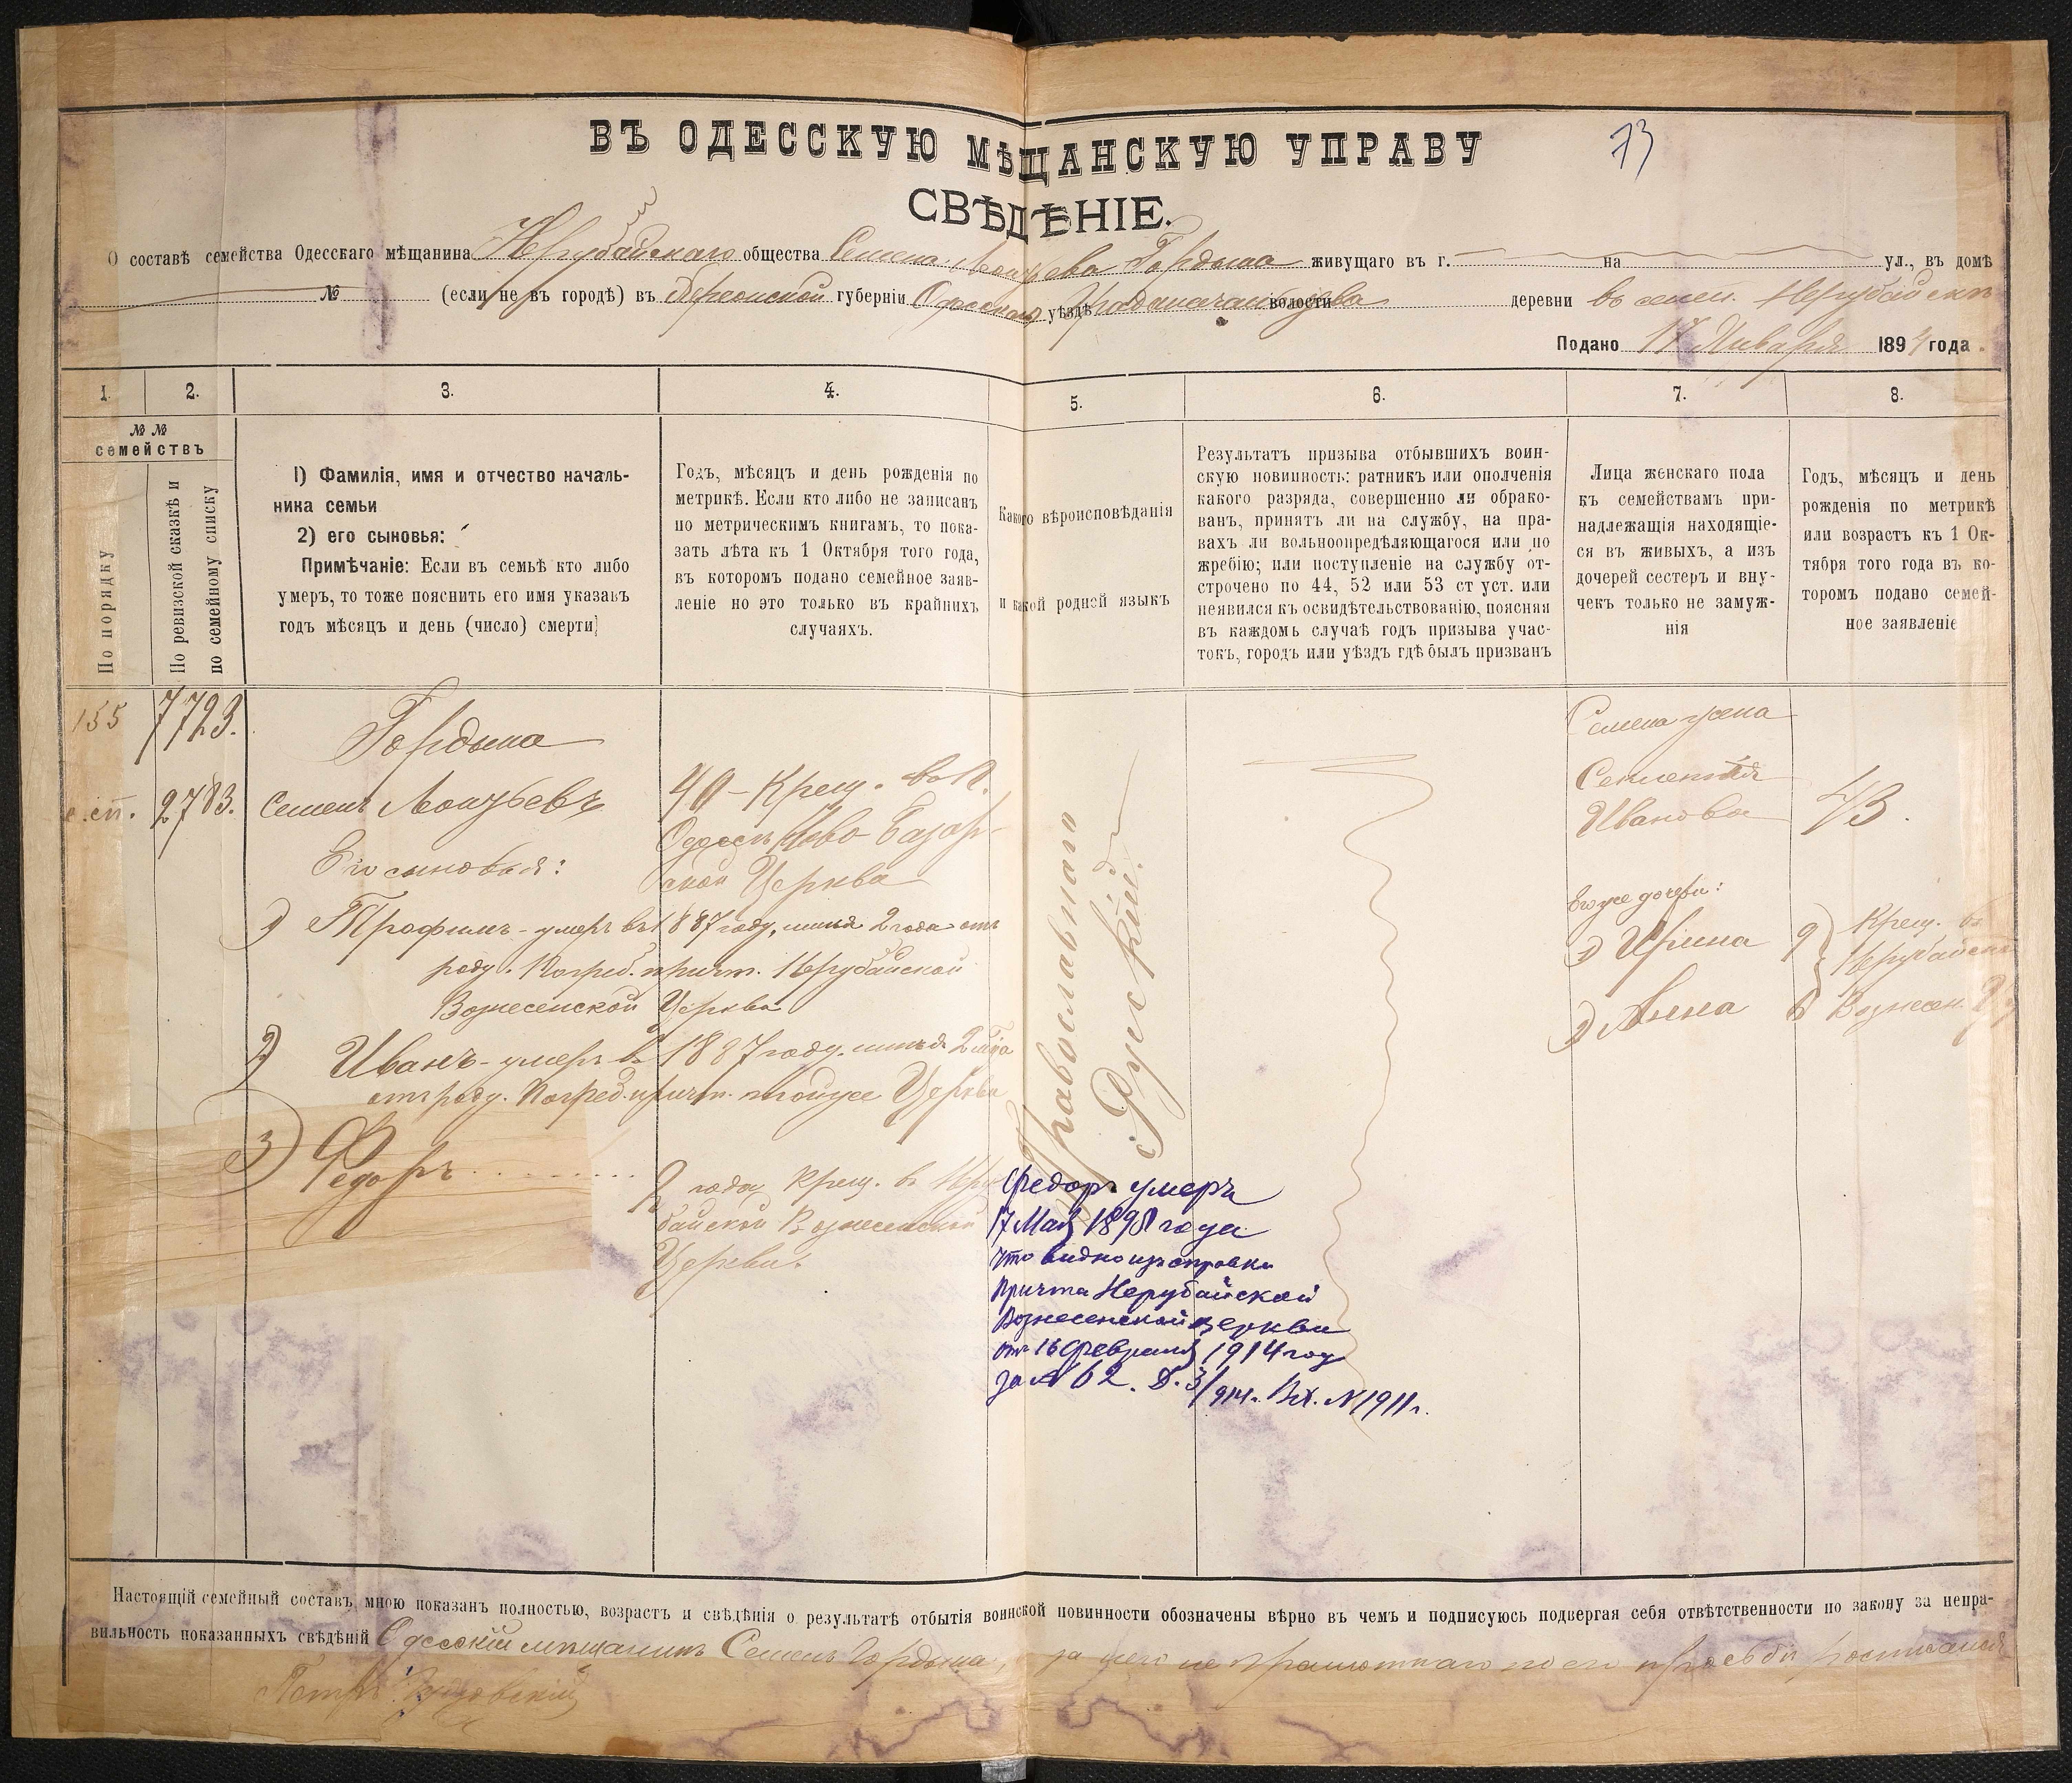 ВЪ ОДЕССКУЮ МѢЩАНСКУЮ УПРАВУ
73
СВѢДѢНІЕ.
О составѣ семейства Одесскаго мѣщанина Нерубайскаго общества Семена Гордыша живущаго въ г. на ул., въ домѣ
№ (если не въ городѣ) въ Херсонской губерніи Одесскаго уѣздѣ волости деревни въ селен. Нерубайскъ
Подано 17 Января 1894 года.
1. 2. 3. 4. 5. 6. 7. 8.
№ №
семействъ
По порядку
По ревизской сказкѣ и
по семейному списку
1) Фамилія, имя и отчество началь-
ника семьи
2) его сыновья:
Примѣчаніе: Если въ семьѣ кто либо
умеръ, то тоже пояснить его имя указавъ
годъ мѣсяцъ и день (число) смерти]
Годъ, мѣсяцъ и день рожденія по
метрикѣ. Если кто либо не записанъ
по метрическимъ книгамъ, то пока-
зать лѣта къ 1 Октября того года,
въ которомъ подано семейное заяв-
леніе но это только въ крайнихъ
случаяхъ.
Какого вѣроисповѣданія
и какой родней языкъ
Результатъ призыва отбывшихъ воин-
скую повинность: ратникъ или ополченія
какого разряда, совершенно ли обрако-
ванъ, принятъ ли на службу, на пра-
вахъ ли вольноопредѣляющагося или по
жребію; или поступленіе на службу от-
строчено по 44, 52 или 53 ст уст. или
неявился къ освидѣтельствованію, поясняя
въ каждомъ случаѣ годъ призыва учас-
токъ, городъ или уѣздъ гдѣ былъ призванъ
Лица женскаго пола
къ семействамъ при-
надлежащія находящіе-
ся въ живыхъ, а изъ
дочерей сестеръ и вну-
чекъ только не замуж-
нія
Годъ, мѣсяцъ и день
рожденія по метрикѣ
или возрастъ къ 1 Ок-
тября того года въ ко-
торомъ подано семей-
ное заявленіе
155
7723.
с.сп. 2783.
Гордыша
Семенъ
Его сыновья:
1) Трофимъ - умеръ въ 1887 году, имѣя 2 года отъ
роду. Погреб. причт. Нерубайской
Вознесенской Церкви
2) Иванъ - умеръ въ 1887 году. имѣя 2 года
отъ роду. Погреб. причт. тойже Церкви
3) Федоръ
40 - Крещ. въ г.
Одессѣ Ново-Базар-
ской Церкви
2 года Крещ. въ Неру
байской Вознесенской
Церкви.
Православнаго
Русскій.
Федоръ умеръ
17 Мая 1898 года
что видно изъ справки
Причта Нерубайской
Вознесенской церкви
отъ 16 Февраля 1914 год
за № 62. Д. 3/914. Вх. № 1911 г.
Семена жена
Ивановна
43.
Его же дочери:
1) Ирина 9
2) Анна 6
Крещ. въ
Нерубайской
Вознесен. Ц
Настоящій семейный составъ мною показанъ полностью, возрастъ и свѣдѣнія о результатѣ отбытія воинской повинности обозначены вѣрно въ чемъ и подписуюсь подвергая себя отвѣтственности по закону за непра-
вильность показанныхъ свѣдѣній Одесскій мѣщанинъ Семенъ Гордыша, за него неграмотнаго по его просьбѣ росписался
Петръ